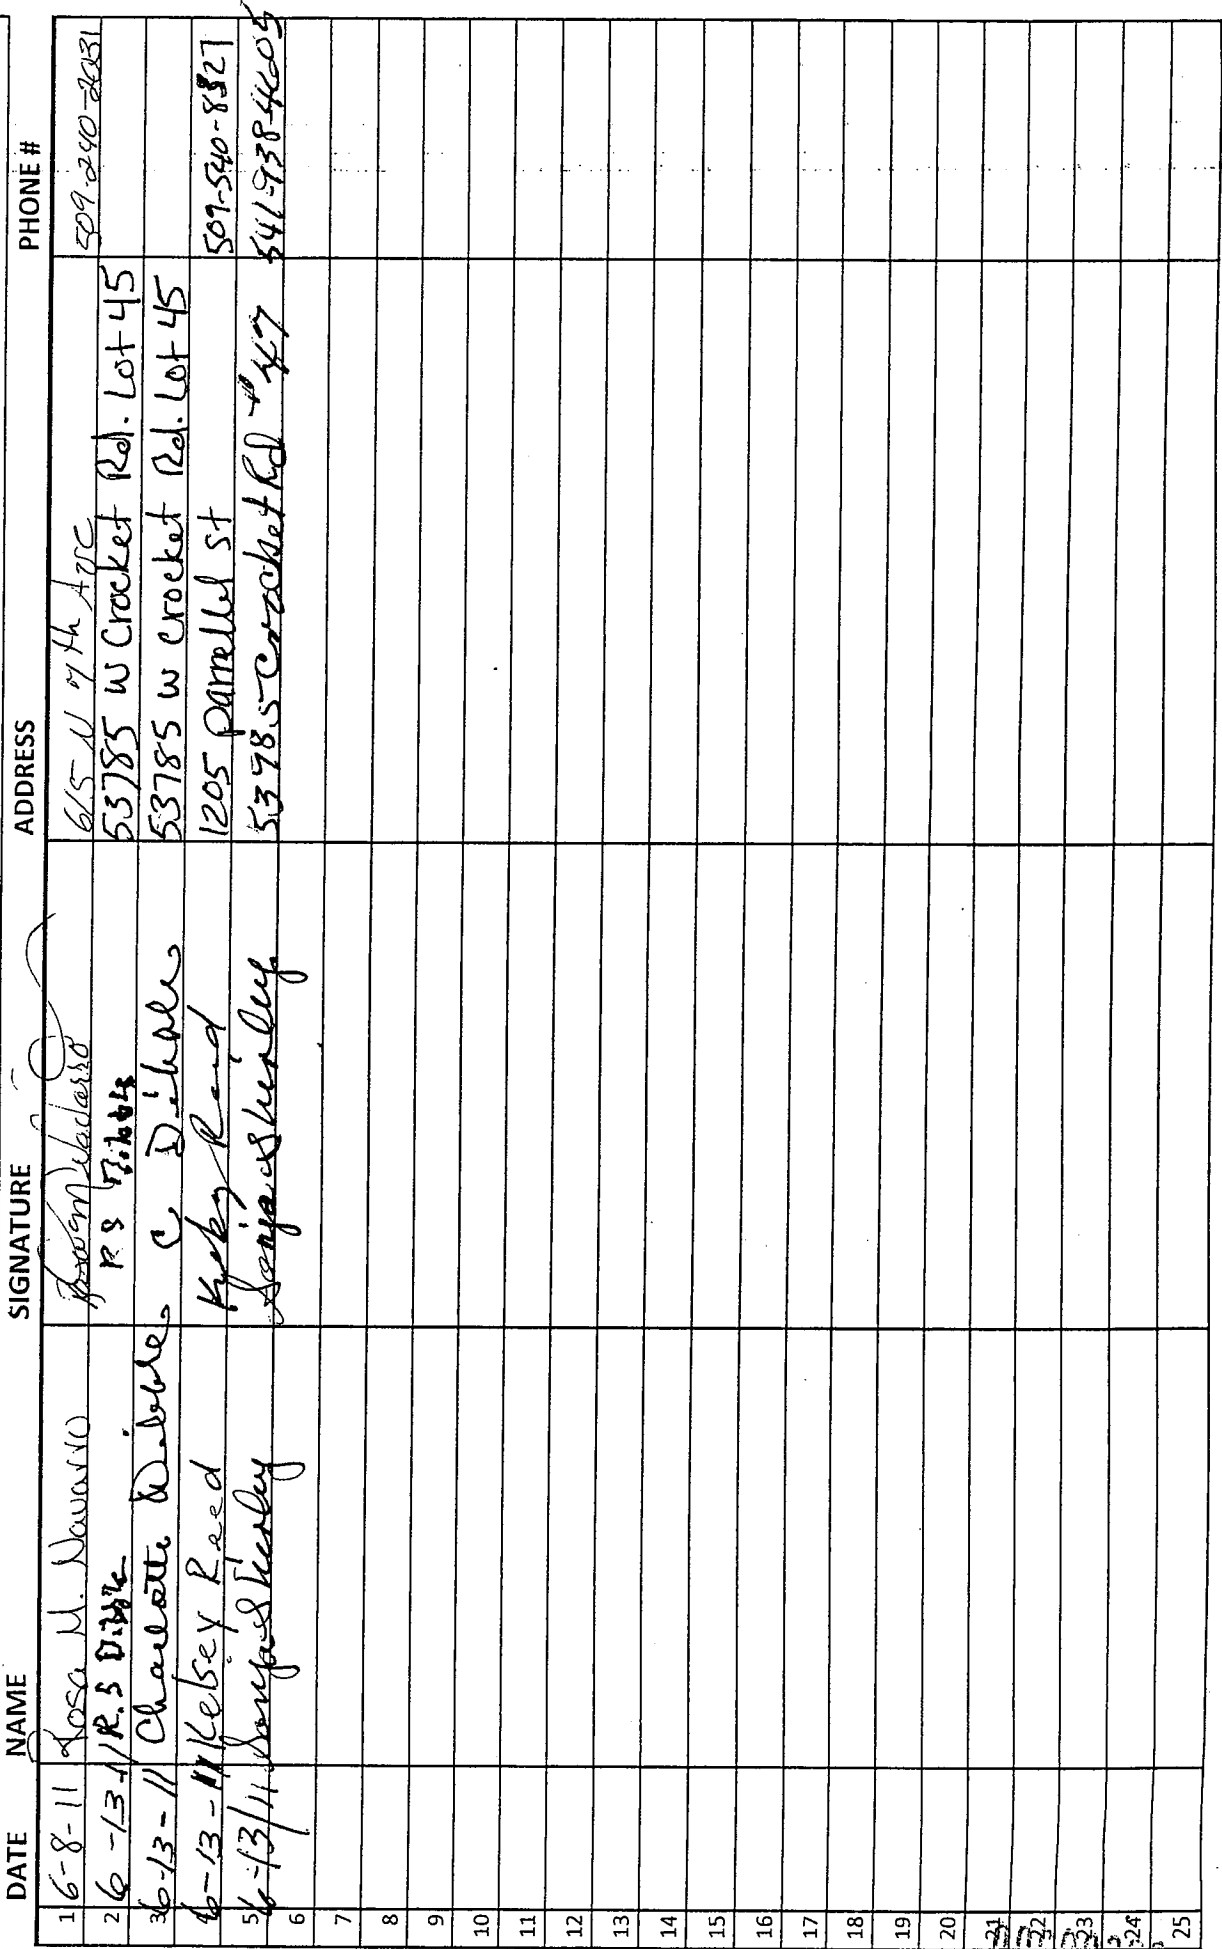 DATE NAME SIGNATURE ADDRESS PHONE #
1 6-8-11 Rosa M. Navarro 615 N 7th Ave 509-240-2031
2 6-13-11 R.S Dibble R S Dibble 53785 W Crocket Rd. Lot 45
3 6-13-11 Charlotte Dibble C Dibble 53785 W Crocket Rd. Lot 45
4 6-13-11 Kelsey Reed 1205 parrellel st 509-540-8827
5 6-13/11 Sonja Shirley Sonja Shirley 53785 Crocket Rd # 47 541-938-4605
6
7
8
9
10
11
12
13
14
15
16
17
18
19
20
21
22
23
24
25